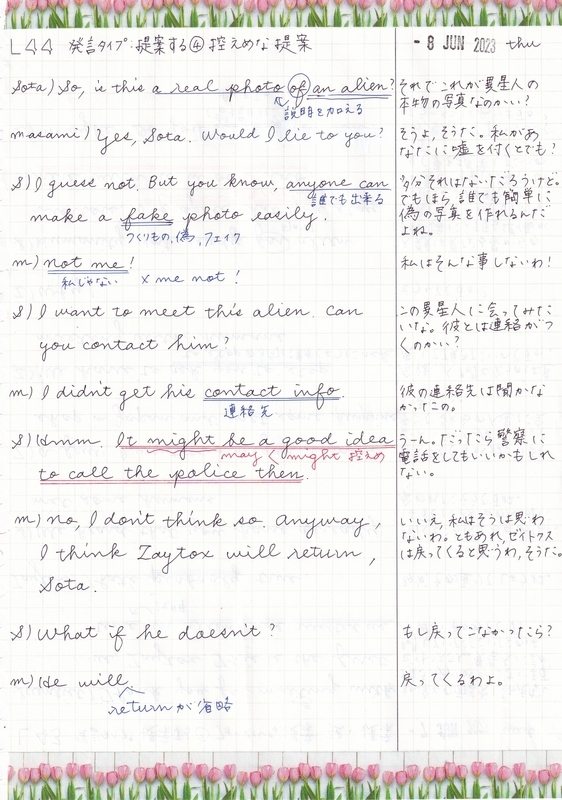 L44 発言タイプ:提案する④ 控えめな提案
- 8 JUN 2023 thu
Sota) So, is this a real photo of an alien?
説明を加える
それでこれが異星人の
本物の写真なのかい?
masami) Yes, Sota. Would I lie to you?
そうよ、そうた。私があ
なたに嘘を付くとでも?
S) I guess not. But you know, anyone can
誰でも出来る
make a fake photo easily.
つくりもの、偽、フェイク
多分それはないだろうけど。
でもほら、誰でも簡単に
偽の写真を作れるんだ
よね。
m) not me!
私じゃない × me not!
私はそんな事しないわ!
S) I want to meet this alien. Can
you contact him?
この異星人に会ってみた
いな。彼とは連絡がつ
くのかい?
m) I didn't get his contact info.
連絡先
彼の連絡先は聞かな
かったの。
S) Hmm. It might be a good idea
may < might 控えめ
to call the police then.
うーん。だったら警察に
電話をしてもいいかもしれ
ない。
m) No, I don't think so. Anyway,
I think Zaytox will return,
Sota.
いいえ、私はそうは思わ
ないわ。ともあれ、ゼイトクス
は戻ってくると思うわ、そうた。
S) What if he doesn't?
もし戻ってこなかったら?
m) He will.
returnが省略
戻ってくるわよ。